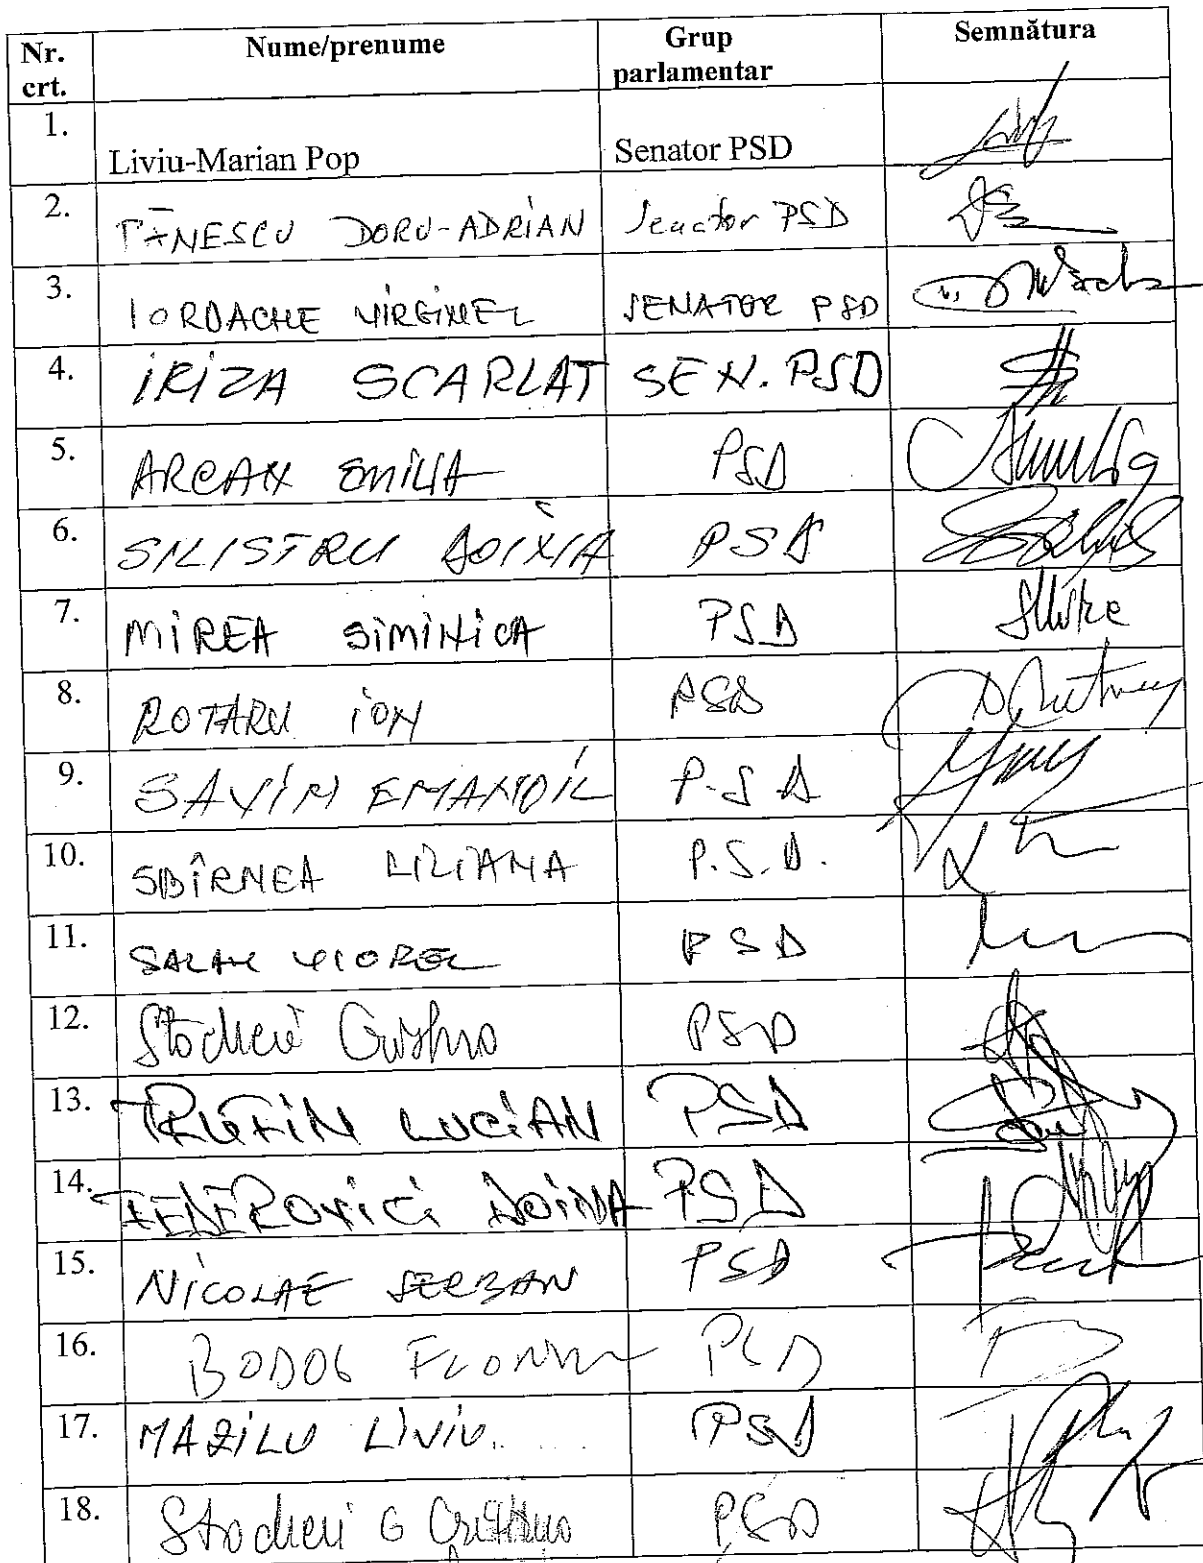 Nr. crt. Nume/prenume Grup parlamentar Semnătura
1. Liviu-Marian Pop Senator PSD
2. PĂNESCU DORU-ADRIAN Senator PSD
3. IORDACHE VIRGINEL SENATOR PSD
4. IRIZA SCARLAT SEN. PSD
5. ARCAN EMILIA PSD
6. SILISTRU DOINA PSD
7. MIREA SIMINICA PSD
8. ROTARU ION PSD
9. SAVIN EMANOIL P.S.D
10. SBÎRNEA LILIANA P.S.D.
11. SALAN VIOREL PSD
12. PSD
13. TRUFIN LUCIAN PSD
14. FEDEROVICI DOINA PSD
15. NICOLAE SERBAN PSD
16. BODOG FLORIAN PSD
17. MAZILU LIVIU. PSD
18. PSD